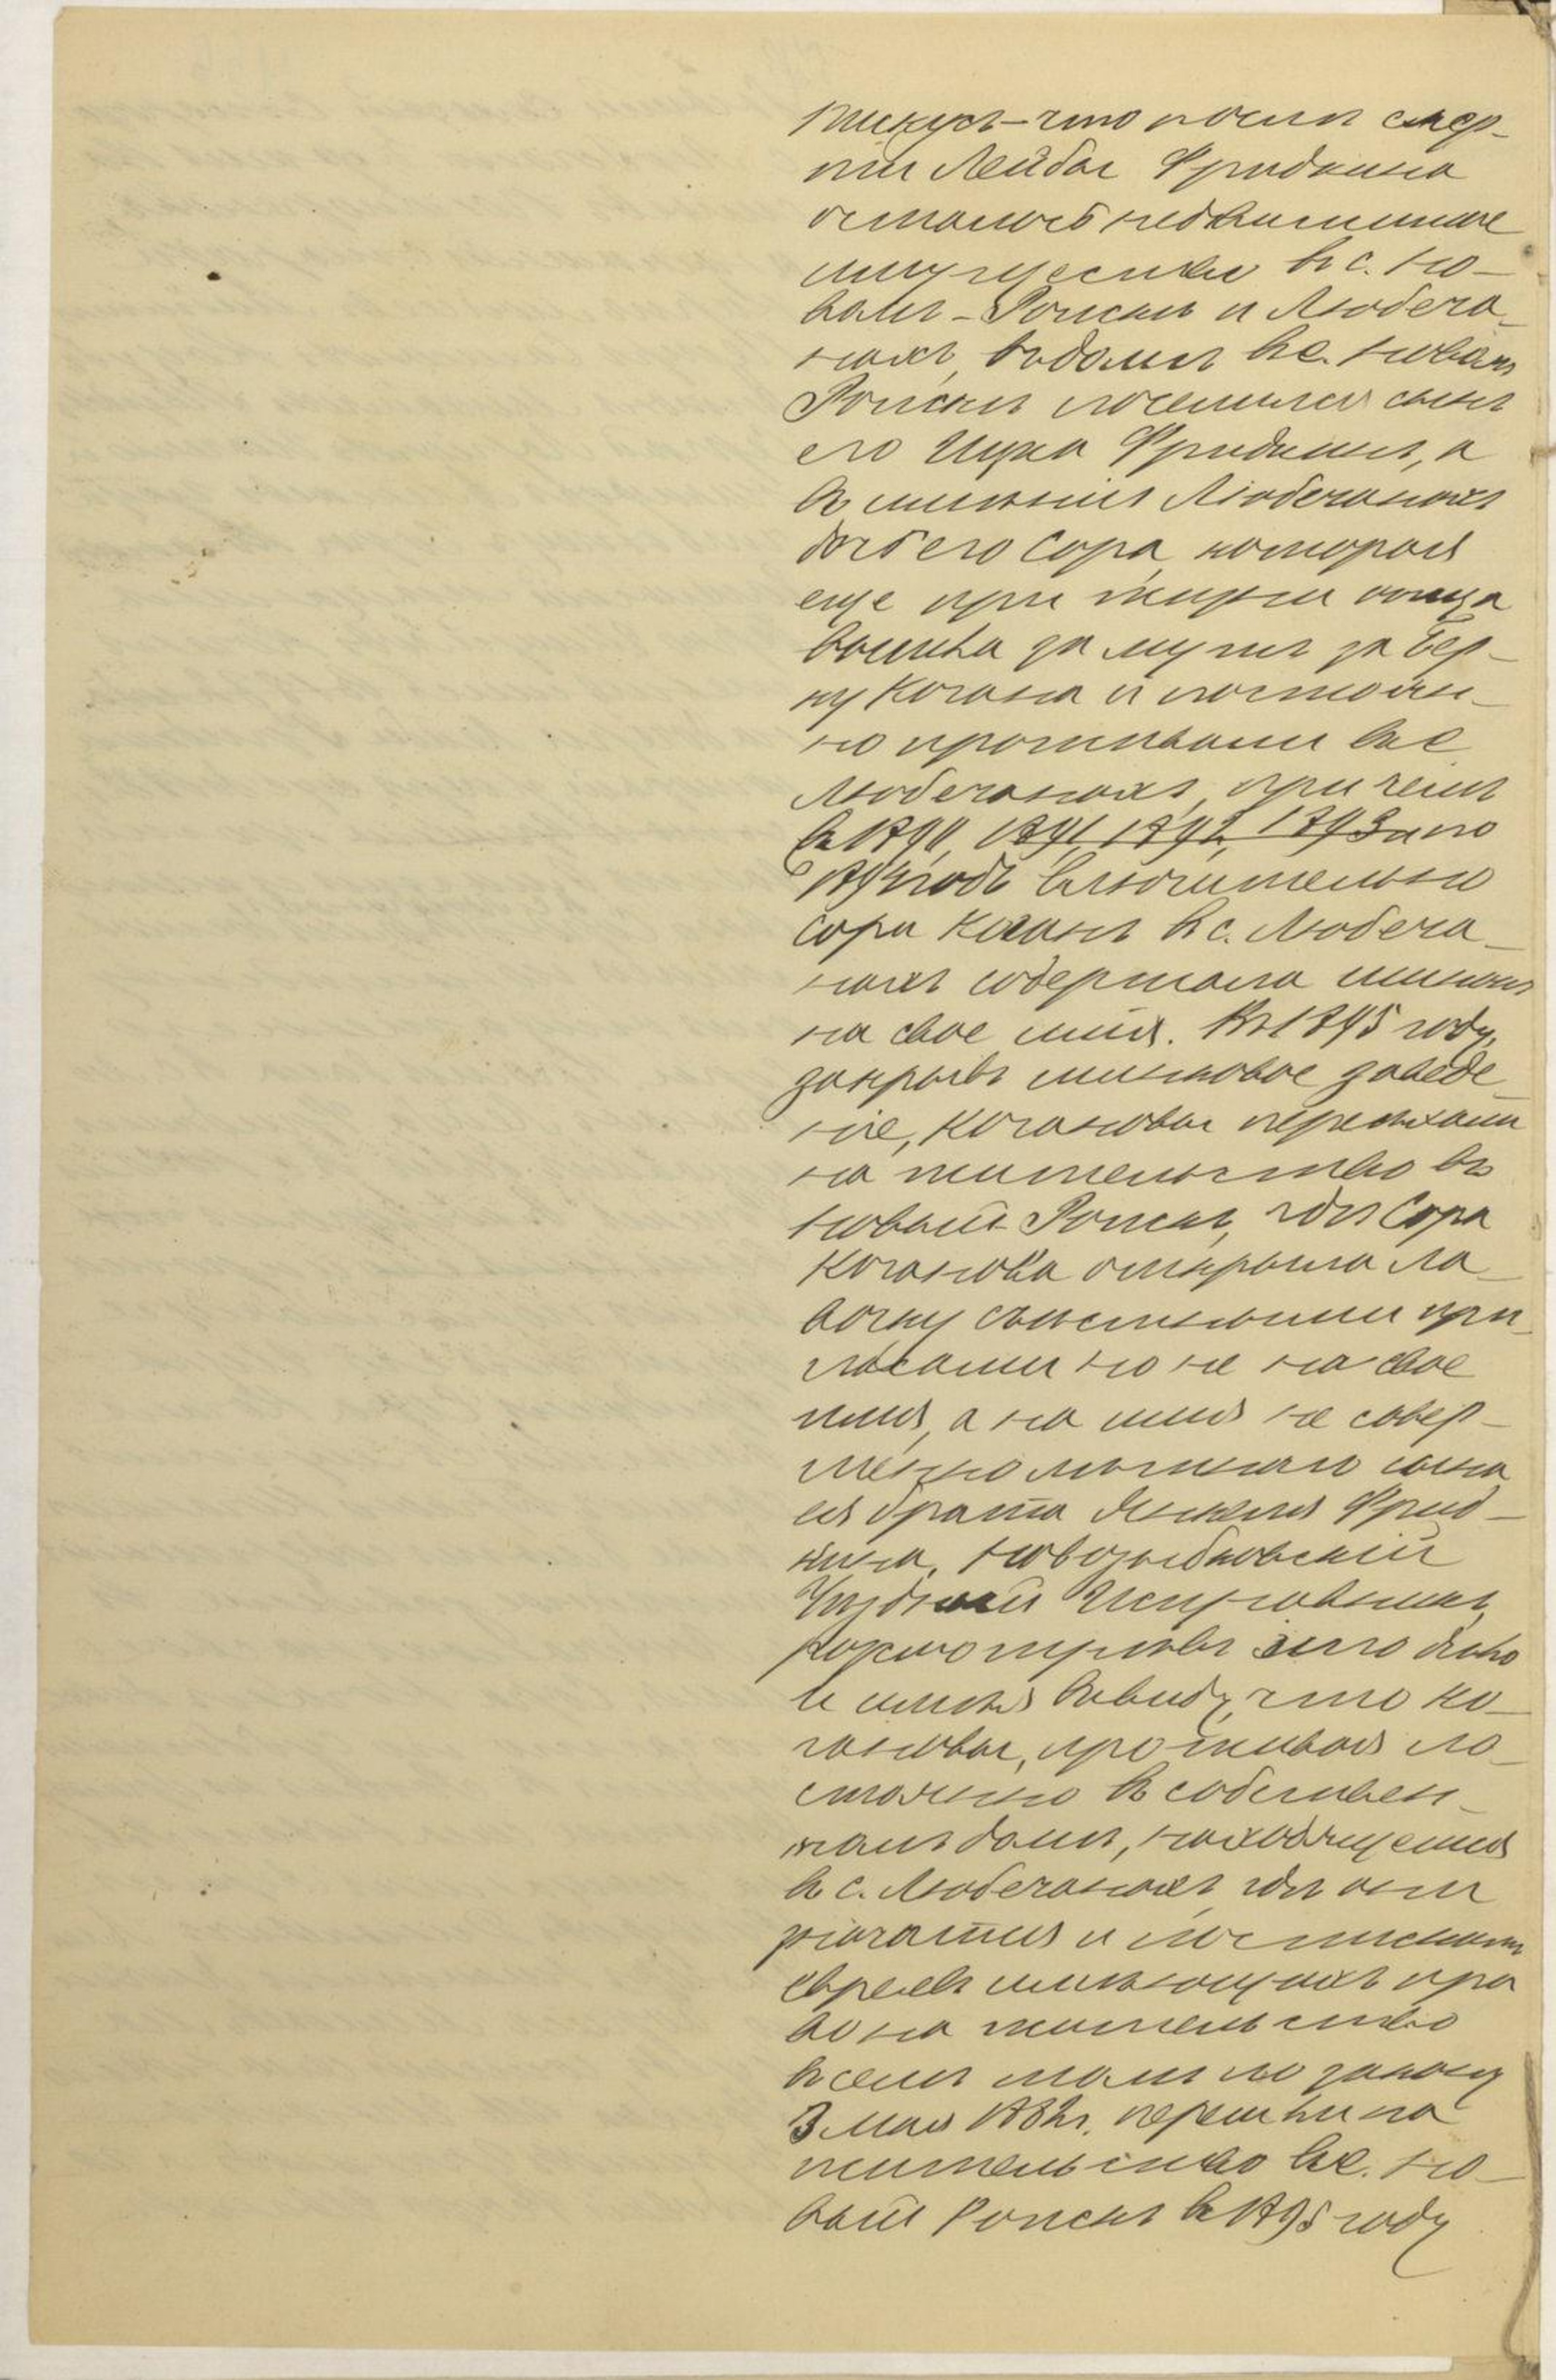 Пискусъ – что после смер-
ти Лейбы Фридкина
осталось недвижимое
имущество въ с. Но-
вомъ-Ропске и Любеча-
нахъ, въ доме въ с. Новомъ
Ропске поселился сынъ
его Ицка Фридкинъ, а
въ имѣніи Любечанахъ
дочь его Сора, которая
еще при жизни отца
вышла за мужъ за Бер-
ку Когана и постоян-
но проживали въ с.
Любечанахъ, при чемъ
въ 1890, 1891, 1892, 1893 и по
1894 годъ включительно
Сора Коганъ въ с. Любеча-
нахъ содержала шинокъ
на свое имя. Въ 1895 году,
закрывъ шинковое заведе-
ніе, Когановы переѣхали
на жительство въ
Новый-Ропскъ, гдѣ Сора
Коганова открыла ла-
вочку съ съѣстными при-
пасами но не на свое
имя, а на имя не совер-
шеннолѣтняго сына
ея брата Янкеля Фрид-
кина. Новозыбковскій
Уѣздный Исправникъ,
разсмотрѣвъ это дѣло
и имѣя въ виду, что Ко-
гановы, проживая по-
стоянно въ собствен-
номъ домѣ, находящемся
въ с. Любечанахъ, гдѣ они
значатся и по спискамъ
евреевъ имѣющихъ пра-
во на жительство
въ семъ по закону
3 мая 1882 г. перешли на
жительство въ с. Но-
вый Ропскъ въ 1895 году